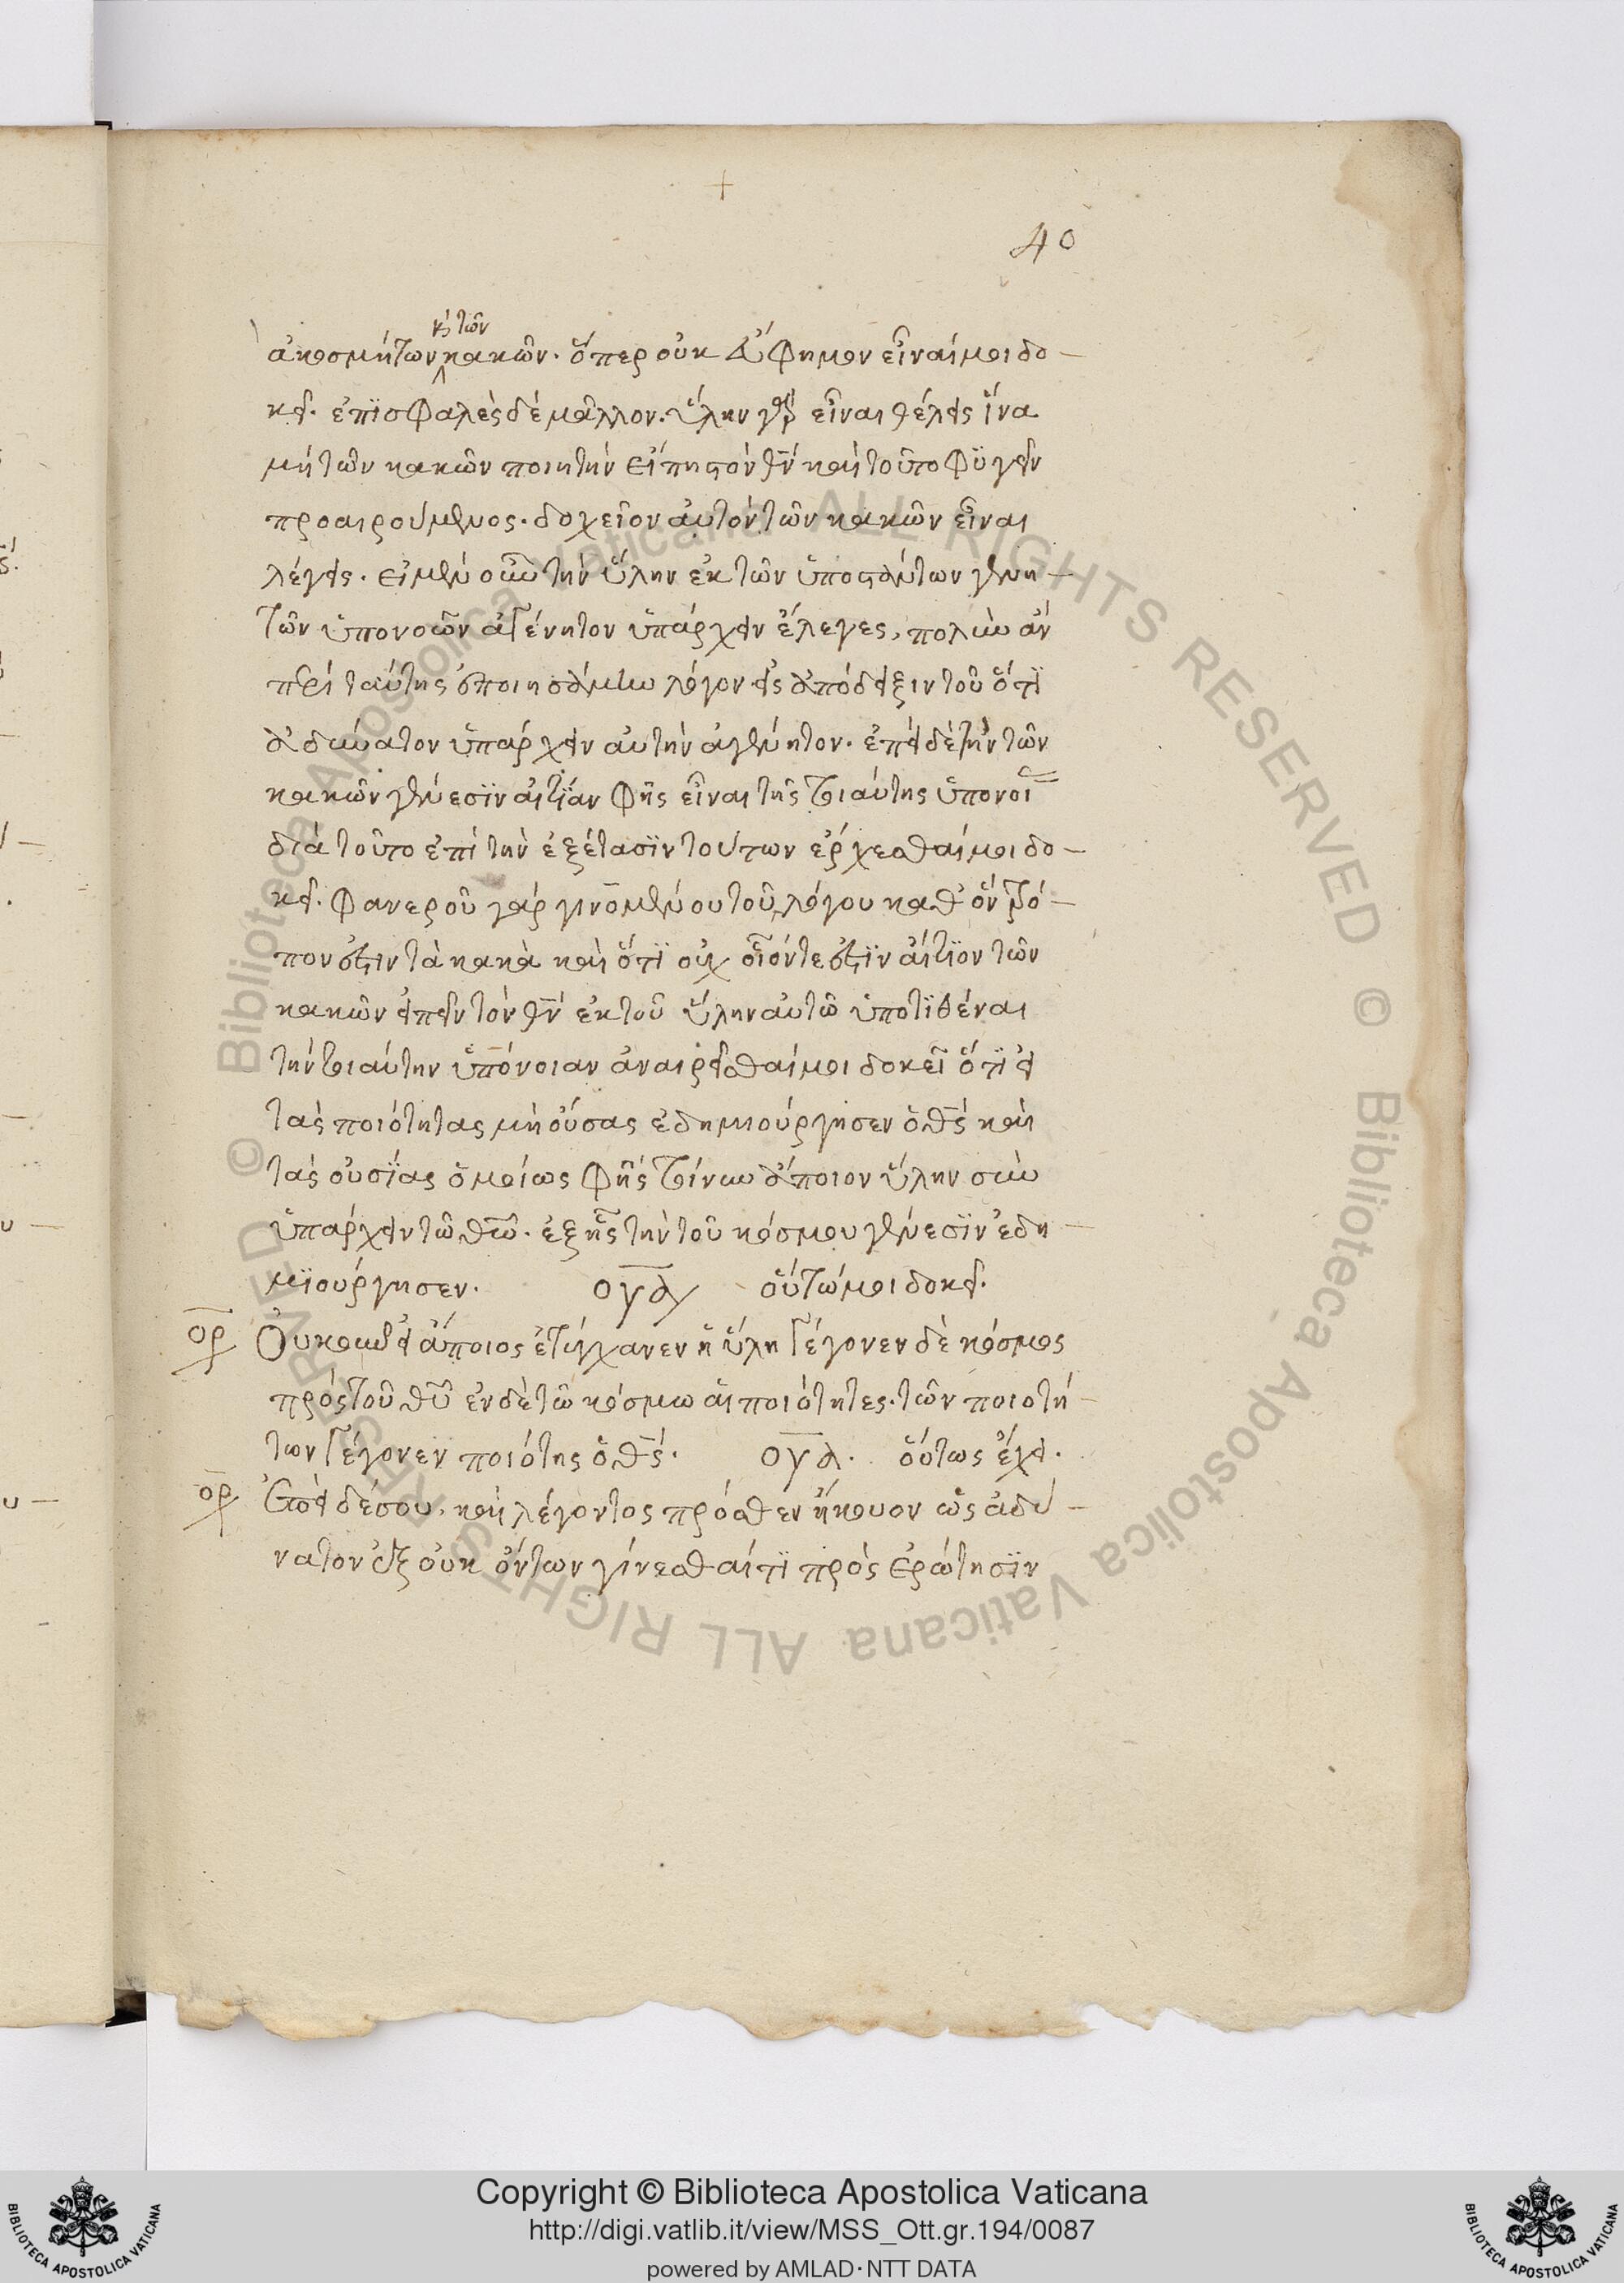 +
40
κ τῶν
ἀκοσμήτων κακῶν. ὅπερ οὐκ εὔφημον εἶναί μοι δο-
κεῖ. ἐπϊσφαλὲς δὲ μᾶλλον. ὕλην γὰρ εἶναι θέλεις ἵνα
μὴ τῶν κακῶν ποιητὴν εἴπης τὸν θν καὶ τοῦτο φϋγεῖν
προαιρούμενος. δοχεῖον αὐτὸν τῶν κακῶν εἶναι
λέγεις. εἰ μὲν οὖν τὴν ὕλην ἐκ τῶν ὑποστάντων γενη-
τῶν ὑπονοῶν ἀγένητον ὑπάρχειν ἔλεγες, πολὺν ἂν
περὶ ταύτης ἐποιησάμην λόγον εἰς ἀπόδειξιν τοῦ ὅτϊ
ἀδύνατον ὑπάρχειν αὐτὴν ἀγένητον. ἐπεὶ δὲ τὴν τῶν
κακῶν γένεσϊν αἰτϊαν φῂς εἶναι τῆς τοιαύτης ὑπονοι
διὰ τοῦτο ἐπὶ τὴν ἐξέτασϊν τούτων ἔρχεσθαί μοι δο-
κεῖ. φανεροῦ γὰρ γινομένου τοῦ λόγου καθ' ὃν τρό-
πον ἐστιν τὰ κακὰ καὶ ὅτϊ οὐχ οἷόν τε ἐστϊν αἴτϊον τῶν
κακῶν εἰπεῖν τὸν θν ἐκ τοῦ ὕλην αὐτῶ ὑποτϊθέναι
τὴν τοιαύτην ὑπόνοιαν ἀναιρεῖσθαί μοι δοκεῖ ὅτϊ εἰ
τὰς ποιότητας μὴ οὔσας ἐδημιούργησεν ὁ θς καὶ
τὰς οὐσϊας ὁμοίως φῂς τοίνυν ἄποιον ὕλην συν
ὑπάρχειν τῶ θω. ἐξ ἧς τὴν τοῦ κόσμου γένεσϊν ἐδη-
μϊούργησεν. ουαλ οὕτω μοι δοκεῖ.
ορ Οὐκοῦν εἰ ἄποιος ἐτύγχανεν ἡ ὕλη γέγονεν δὲ κόσμος
πρὸς τοῦ θυ ἐν δὲ τῶ κόσμω αἱ ποιότητες. τῶν ποιοτή-
των γέγονεν ποιότης ὁ θς. ουαλ. οὕτως ἔχει.
ορ Ἐπεὶ δέ σου καὶ λέγοντος πρόσθεν ἤκουον ὡς ἀδύ-
νατον ἐξ οὐκ ὄντων γίνεσθαί τϊ πρὸς ἐρώτησϊν
Copyright © Biblioteca Apostolica Vaticana
http://digi.vatlib.it/view/MSS_Ott.gr.194/0087
powered by AMLAD·NTT DATA
BIBLIOTECA APOSTOLICA VATICANA
BIBLIOTECA APOSTOLICA VATICANA
© Biblioteca Apostolica Vaticana ALL RIGHTS RESERVED © Biblioteca Apostolica Vaticana ALL RIGHTS RESERVED